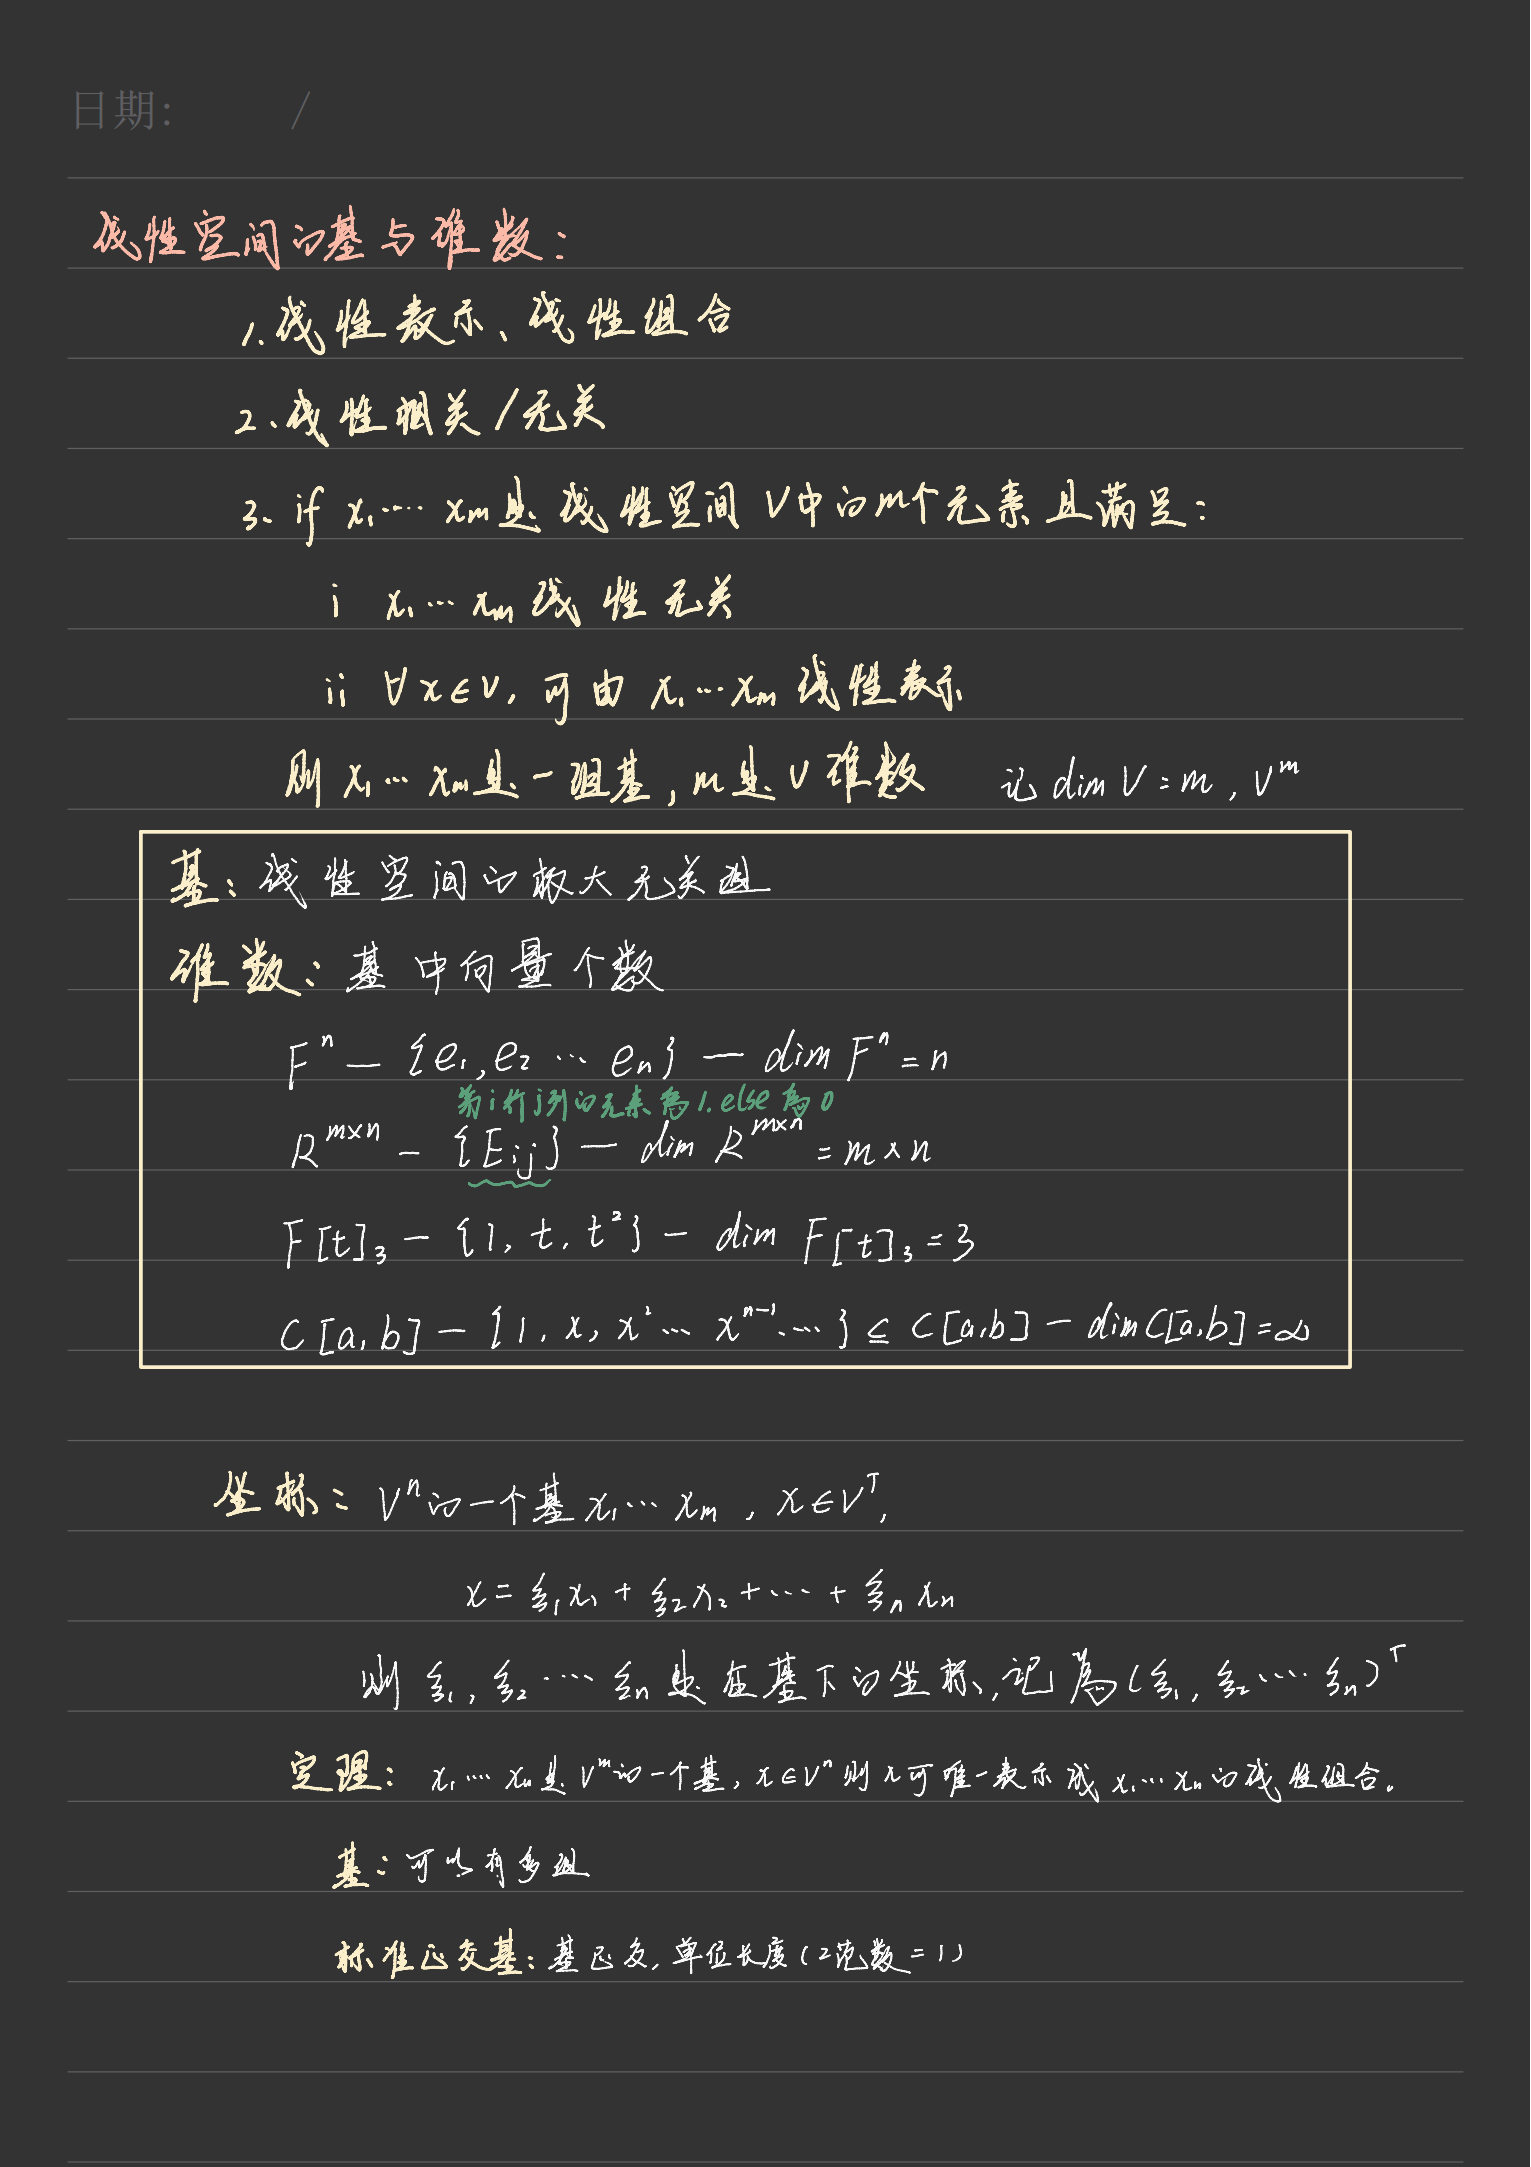 日期: /
线性空间的基与维数:
1.线性表示、线性组合
2.线性相关/无关
3. if x₁…… xm是线性空间 V中的m个元素且满足:
i x₁… xm线性无关
ii ∀x∈V, 可由 x₁…xm线性表示
则 x₁… xm是一组基, m是V维数 记 dim V = m , Vᵐ
基: 线性空间的极大无关组
维数: 基中向量个数
Fⁿ — {e₁,e₂ … en} — dim Fⁿ = n
第i行j列的元素为1. else为0
Rᵐˣⁿ — {Eij} — dim Rᵐˣⁿ = m×n
F[t]₃ — {1, t, t²} — dim F[t]₃ = 3
C[a,b] — {1, x, x² … xⁿ⁻¹ …} ⊆ C[a,b] — dim C[a,b] = ∞
坐标: Vⁿ的一个基 x₁… xm , x∈Vᵀ,
x = ξ₁x₁ + ξ₂x₂ + … + ξn xn
则 ξ₁, ξ₂ …… ξn 是在基下的坐标,记为(ξ₁, ξ₂ …… ξn)ᵀ
定理: x₁… xn是Vᵐ的一个基, x∈Vⁿ则x可唯一表示成 x₁… xn的线性组合.
基: 可以有多组
标准正交基: 基正交, 单位长度(2范数=1)